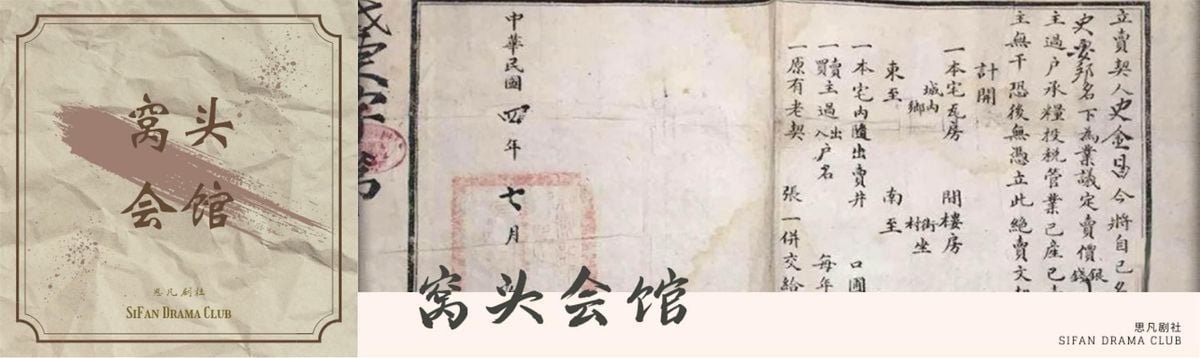 窝头
会馆
思凡剧社
SIFAN DRAMA CLUB
立賣契人史金昌今將自己名
史安邦名下為業議定賣價銀錢
主過戶承糧投税管業已產已
主無干恐後無憑立此絶賣文契
計開
一本宅瓦房 間樓房
城內鄉 村街坐
東至 南至
一本宅內隨出賣井 口圊
一賣買主過出入户名 每年
一原有老契 張一併交給
中華民國四年七月
窝头会馆
思凡剧社
SIFAN DRAMA CLUB